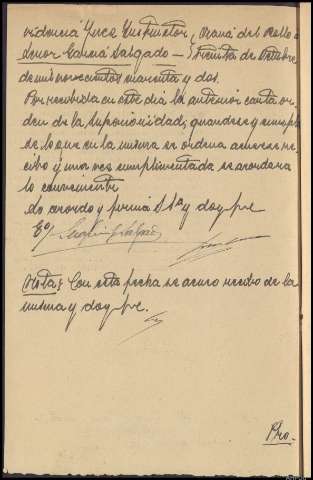 videncia Juez Instructor,
Señor García Salgado — } treinta de Octubre
de mil novecientos cuarenta y dos.
Por recibida en este dia la anterior carta or-
den de la Superioridad, guardese y cumpla
de lo que en la misma se ordena acusese re-
cibo y una vez cumplimentada se acordara
lo conveniente
Lo acordo y firma S Sª y doy fe
Eº/
Nota } Con esta fecha se acuso recibo de la
misma y doy fe.
Pro-